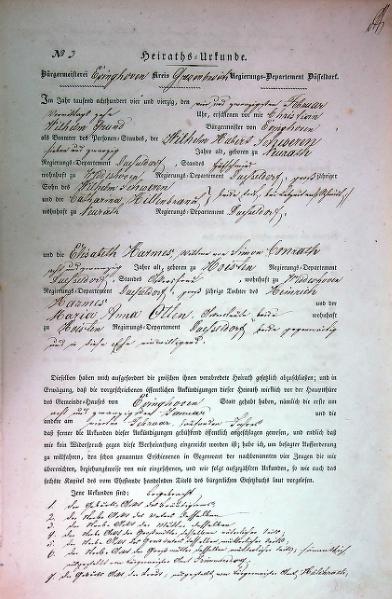 № 3 Heiraths-Urkunde.
Bürgermeisterei Evinghoven Kreis Grevenbroich Regierungs-Departement Düsseldorf.
Im Jahr tausend achthundert vier und vierzig, den
Vormittags zehn Uhr, erschienen vor mir Christian
Wilhelm Bürgermeister von Evinghoven
als Beamten des Personen-Standes, der Wilhelm Hubert Schweren
sieben und zwanzig Jahre alt, geboren zu Neurath
Regierungs-Departement Duesseldorf, Standes
wohnhaft zu Widdeshoven Regierungs-Departement Duesseldorf, großjähriger
Sohn des Wilhelm Schweren
und der Catharina Hillenbrand, beide
wohnhaft zu Neurath Regierungs-Departement Duesseldorf,
und die Elisabeth Harmes, Wittwe von Simon Conrath
acht und zwanzig Jahre alt, geboren zu Hoisten Regierungs-Departement
Duesseldorf, Standes, wohnhaft zu Widdeshoven
Regierungs-Departement Duesseldorf, großjährige Tochter des Heinrich
Harmes und der
Maria Anna Otten, beide wohnhaft
zu Hoisten Regierungs-Departement Duesseldorf, beide gegenwärtig
und in diese Ehe einwilligend.
Dieselben haben mich aufgefordert die zwischen ihnen verabredete Heirath gesetzlich abzuschließen; und in
Erwägung, daß die vorgeschriebenen öffentlichen Ankündigungen dieser Heirath wirklich vor der Hauptthüre
des Gemeinde-Hauses von Evinghoven Statt gehabt haben, nämlich die erste am
acht und zwanzigsten Januar und die
andere am vierten Februar laufenden Jahres
daß ferner die Urkunde dieser Ankündigungen gesetzförmlich öffentlich angeschlagen gewesen, und endlich daß
mir kein Widerspruch gegen diese Verheirathung eingereicht worden ist; habe ich, um besagter Aufforderung
zu willfahren, den schon genannten Erschienenen in Gegenwart der nachbenannten vier Zeugen die mir
überreichten, beziehungsweise von mir eingesehenen, und wie folgt aufgezählten Urkunden, so wie auch das
sechste Kapitel des vom Ehestande handelnden Titels des bürgerlichen Gesetzbuchs laut vorgelesen.
Jene Urkunden sind:
1. der Geburts Akt des Bräutigams,
2. der Sterbe Akt des Vaters desselben
3. der Sterbe Akt der Mutter desselben
4. der Sterbe Akt des Großvaters desselben
5. der Sterbe Akt der
6. der Sterbe Akt der Großmutter desselben mütterlicher Seits,
ausgestellt vom Bürgermeister Amt
7. der Geburts Akt der Braut, ausgestellt vom Bürgermeister Amt